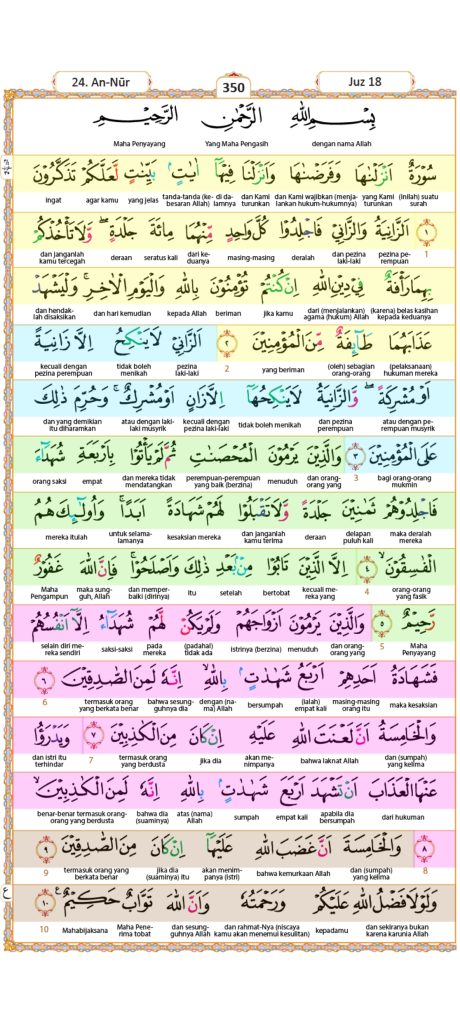 24. An-Nūr 350 Juz 18
بِسْمِ اللّٰهِ الرَّحْمٰنِ الرَّحِيْمِ
Maha Penyayang Yang Maha Pengasih dengan nama Allah
سُوْرَةٌ اَنْزَلْنٰهَا وَفَرَضْنٰهَا وَاَنْزَلْنَا فِيْهَآ اٰيٰتٍۢ بَيِّنٰتٍ لَّعَلَّكُمْ تَذَكَّرُوْنَ
ingat agar kamu yang jelas tanda-tanda (ke-besaran Allah) di da-lamnya dan Kami turunkan dan Kami wajibkan (menja-lankan hukum-hukumnya) yang Kami turunkan (inilah) suatu surah
١ اَلزَّانِيَةُ وَالزَّانِيْ فَاجْلِدُوْا كُلَّ وَاحِدٍ مِّنْهُمَا مِائَةَ جَلْدَةٍ ۖ وَّلَا تَأْخُذْكُمْ
dan janganlah kamu tercegah deraan seratus kali dari ke-duanya masing-masing deralah dan pezina laki-laki pezina pe-rempuan 1
بِهِمَا رَأْفَةٌ فِيْ دِيْنِ اللّٰهِ اِنْ كُنْتُمْ تُؤْمِنُوْنَ بِاللّٰهِ وَالْيَوْمِ الْاٰخِرِۚ وَلْيَشْهَدْ
dan hendak-lah disaksikan dan hari kemudian kepada Allah beriman jika kamu dari (menjalankan) agama (hukum) Allah (karena) belas kasihan kepada keduanya
عَذَابَهُمَا طَاۤىِٕفَةٌ مِّنَ الْمُؤْمِنِيْنَ ٢ اَلزَّانِيْ لَا يَنْكِحُ اِلَّا زَانِيَةً
kecuali dengan pezina perempuan tidak boleh menikah pezina laki-laki 2 yang beriman (oleh) sebagian orang-orang (pelaksanaan) hukuman mereka
اَوْ مُشْرِكَةً ۖ وَّالزَّانِيَةُ لَا يَنْكِحُهَآ اِلَّا زَانٍ اَوْ مُشْرِكٌۚ وَحُرِّمَ ذٰلِكَ
dan yang demikian itu diharamkan atau dengan laki-laki musyrik kecuali dengan pezina laki-laki tidak boleh menikah dan pezina perempuan atau dengan pe-rempuan musyrik
عَلَى الْمُؤْمِنِيْنَ ٣ وَالَّذِيْنَ يَرْمُوْنَ الْمُحْصَنٰتِ ثُمَّ لَمْ يَأْتُوْا بِاَرْبَعَةِ شُهَدَاۤءَ
orang saksi empat dan mereka tidak mendatangkan perempuan-perempuan yang baik (berzina) menuduh dan orang-orang yang 3 bagi orang-orang mukmin
فَاجْلِدُوْهُمْ ثَمٰنِيْنَ جَلْدَةً وَّلَا تَقْبَلُوْا لَهُمْ شَهَادَةً اَبَدًاۚ وَاُولٰۤىِٕكَ هُمُ
mereka itulah untuk selama-lamanya kesaksian mereka dan janganlah kamu terima deraan delapan puluh kali maka deralah mereka
الْفٰسِقُوْنَۙ ٤ اِلَّا الَّذِيْنَ تَابُوْا مِنْۢ بَعْدِ ذٰلِكَ وَاَصْلَحُوْاۚ فَاِنَّ اللّٰهَ غَفُوْرٌ
Maha Pengampun maka sung-guh, Allah dan memper-baiki (dirinya) itu setelah bertobat kecuali me-reka yang 4 orang-orang yang fasik
رَّحِيْمٌ ٥ وَالَّذِيْنَ يَرْمُوْنَ اَزْوَاجَهُمْ وَلَمْ يَكُنْ لَّهُمْ شُهَدَاۤءُ اِلَّآ اَنْفُسُهُمْ
selain diri me-reka sendiri saksi-saksi pada mereka (padahal) tidak ada istrinya (berzina) menuduh dan orang-orang yang 5 Maha Penyayang
فَشَهَادَةُ اَحَدِهِمْ اَرْبَعُ شَهٰدٰتٍۢ بِاللّٰهِۙ اِنَّهٗ لَمِنَ الصّٰدِقِيْنَ ٦
6 termasuk orang yang berkata benar bahwa sesung-guhnya dia dengan (na-ma) Allah bersumpah (ialah) empat kali masing-masing orang itu maka kesaksian
وَالْخَامِسَةُ اَنَّ لَعْنَتَ اللّٰهِ عَلَيْهِ اِنْ كَانَ مِنَ الْكٰذِبِيْنَ ٧ وَيَدْرَؤُا
dan istri itu terhindar 7 termasuk orang yang berdusta jika dia akan me-nimpanya bahwa laknat Allah dan (sumpah) yang kelima
عَنْهَا الْعَذَابَ اَنْ تَشْهَدَ اَرْبَعَ شَهٰدٰتٍۢ بِاللّٰهِ اِنَّهٗ لَمِنَ الْكٰذِبِيْنَۙ
benar-benar termasuk orang-orang yang berdusta bahwa dia (suaminya) atas (nama) Allah sumpah empat kali apabila dia bersumpah dari hukuman
٨ وَالْخَامِسَةَ اَنَّ غَضَبَ اللّٰهِ عَلَيْهَآ اِنْ كَانَ مِنَ الصّٰدِقِيْنَ ٩
9 termasuk orang yang berkata benar jika dia (suaminya) itu akan menim-panya (istri) bahwa kemurkaan Allah dan (sumpah) yang kelima 8
وَلَوْلَا فَضْلُ اللّٰهِ عَلَيْكُمْ وَرَحْمَتُهٗ وَاَنَّ اللّٰهَ تَوَّابٌ حَكِيْمٌ ١٠ ع
10 Mahabijaksana Maha Pene-rima tobat dan sesung-guhnya Allah dan rahmat-Nya (niscaya kamu akan menemui kesulitan) kepadamu dan sekiranya bukan karena karunia Allah